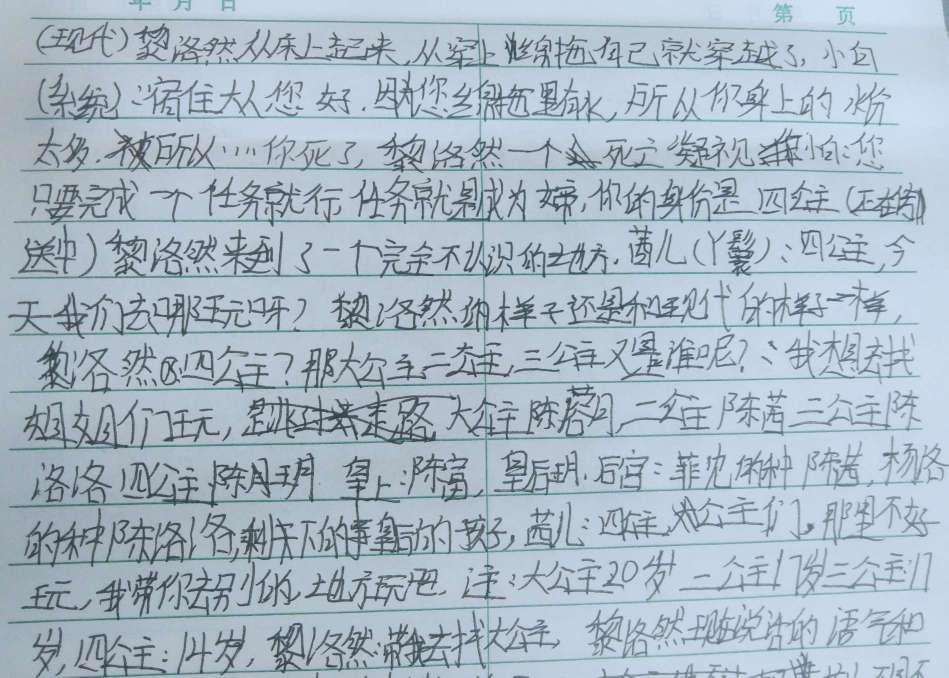 年 月 日 第 页
(现代)黎洛然从床上起来,从穿上拖自己就穿越了,小白
(系统):宿住大人您好.因为您里有水,所以你身上的水份
太多.所以……你死了,黎洛然一个死亡凝视小白:您
只要完成一个任务就行,任务就是成为女帝,你的身份是四公主(还在
送中)黎洛然来到了一个完全不认识的地方.茜儿(丫鬟):四公主,今
天我们去哪玩呀?黎洛然的样子还是和现代的样子一样,
黎洛然:四公主?那大公主,二公主,三公主又是谁呢?:我想去找
姐姐们玩,大公主陈,二公主陈茜三公主陈
洛洛四公主陈月玥 皇上:陈富,皇后玥.后宫:菲儿的种陈茜,杨洛
的种陈洛洛,剩下的皇后的孩子,茜儿:四公主,大公主们,那里不好
玩,我带你去别的地方玩吧.注:大公主20岁 二公主17岁三公主:17
岁,四公主:14岁,黎洛然:带我去找大公主, 黎洛然现在说话的语气和